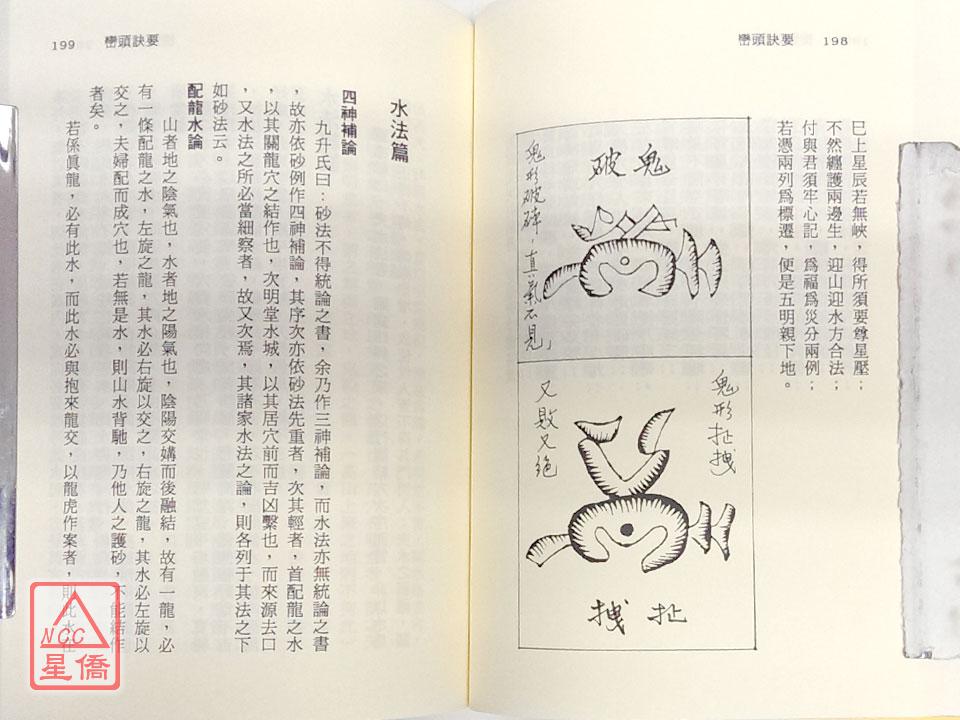 巒頭訣要　198
巳上星辰若無峽，得所須要尊星壓；
不然纏護兩邊生，迎山迎水方合法；
付與君須牢心記，爲福爲災分兩例；
若憑兩列爲標遷，便是五明親下地。
破鬼
鬼形破碎，真氣不見」
鬼形扯拽
又敗又絕
拽扯
199　巒頭訣要
水法篇
四神補論
九升氏曰：砂法不得統論之書，余乃作三神補論，而水法亦無統論之書
，故亦依砂例作四神補論，其序次亦依砂法先重者，次其輕者，首配龍之水
，以其關龍穴之結作也，次明堂水城，以其居穴前而吉凶繫也，而來源去口
，又水法之所必當細察者，故又次焉，其諸家水法之論，則各列于其法之下
如砂法云。
配龍水論
山者地之陰氣也，水者地之陽氣也，陰陽交媾而後融結，故有一龍，必
有一條配龍之水，左旋之龍，其水必右旋以交之，右旋之龍，其水必左旋以
交之，夫婦配而成穴也，若無是水，則山水背馳，乃他人之護砂，不能結作
者矣。
若係眞龍，必有此水，而此水必與抱來龍交，以龍虎作案者，則此水在
NCC
星僑